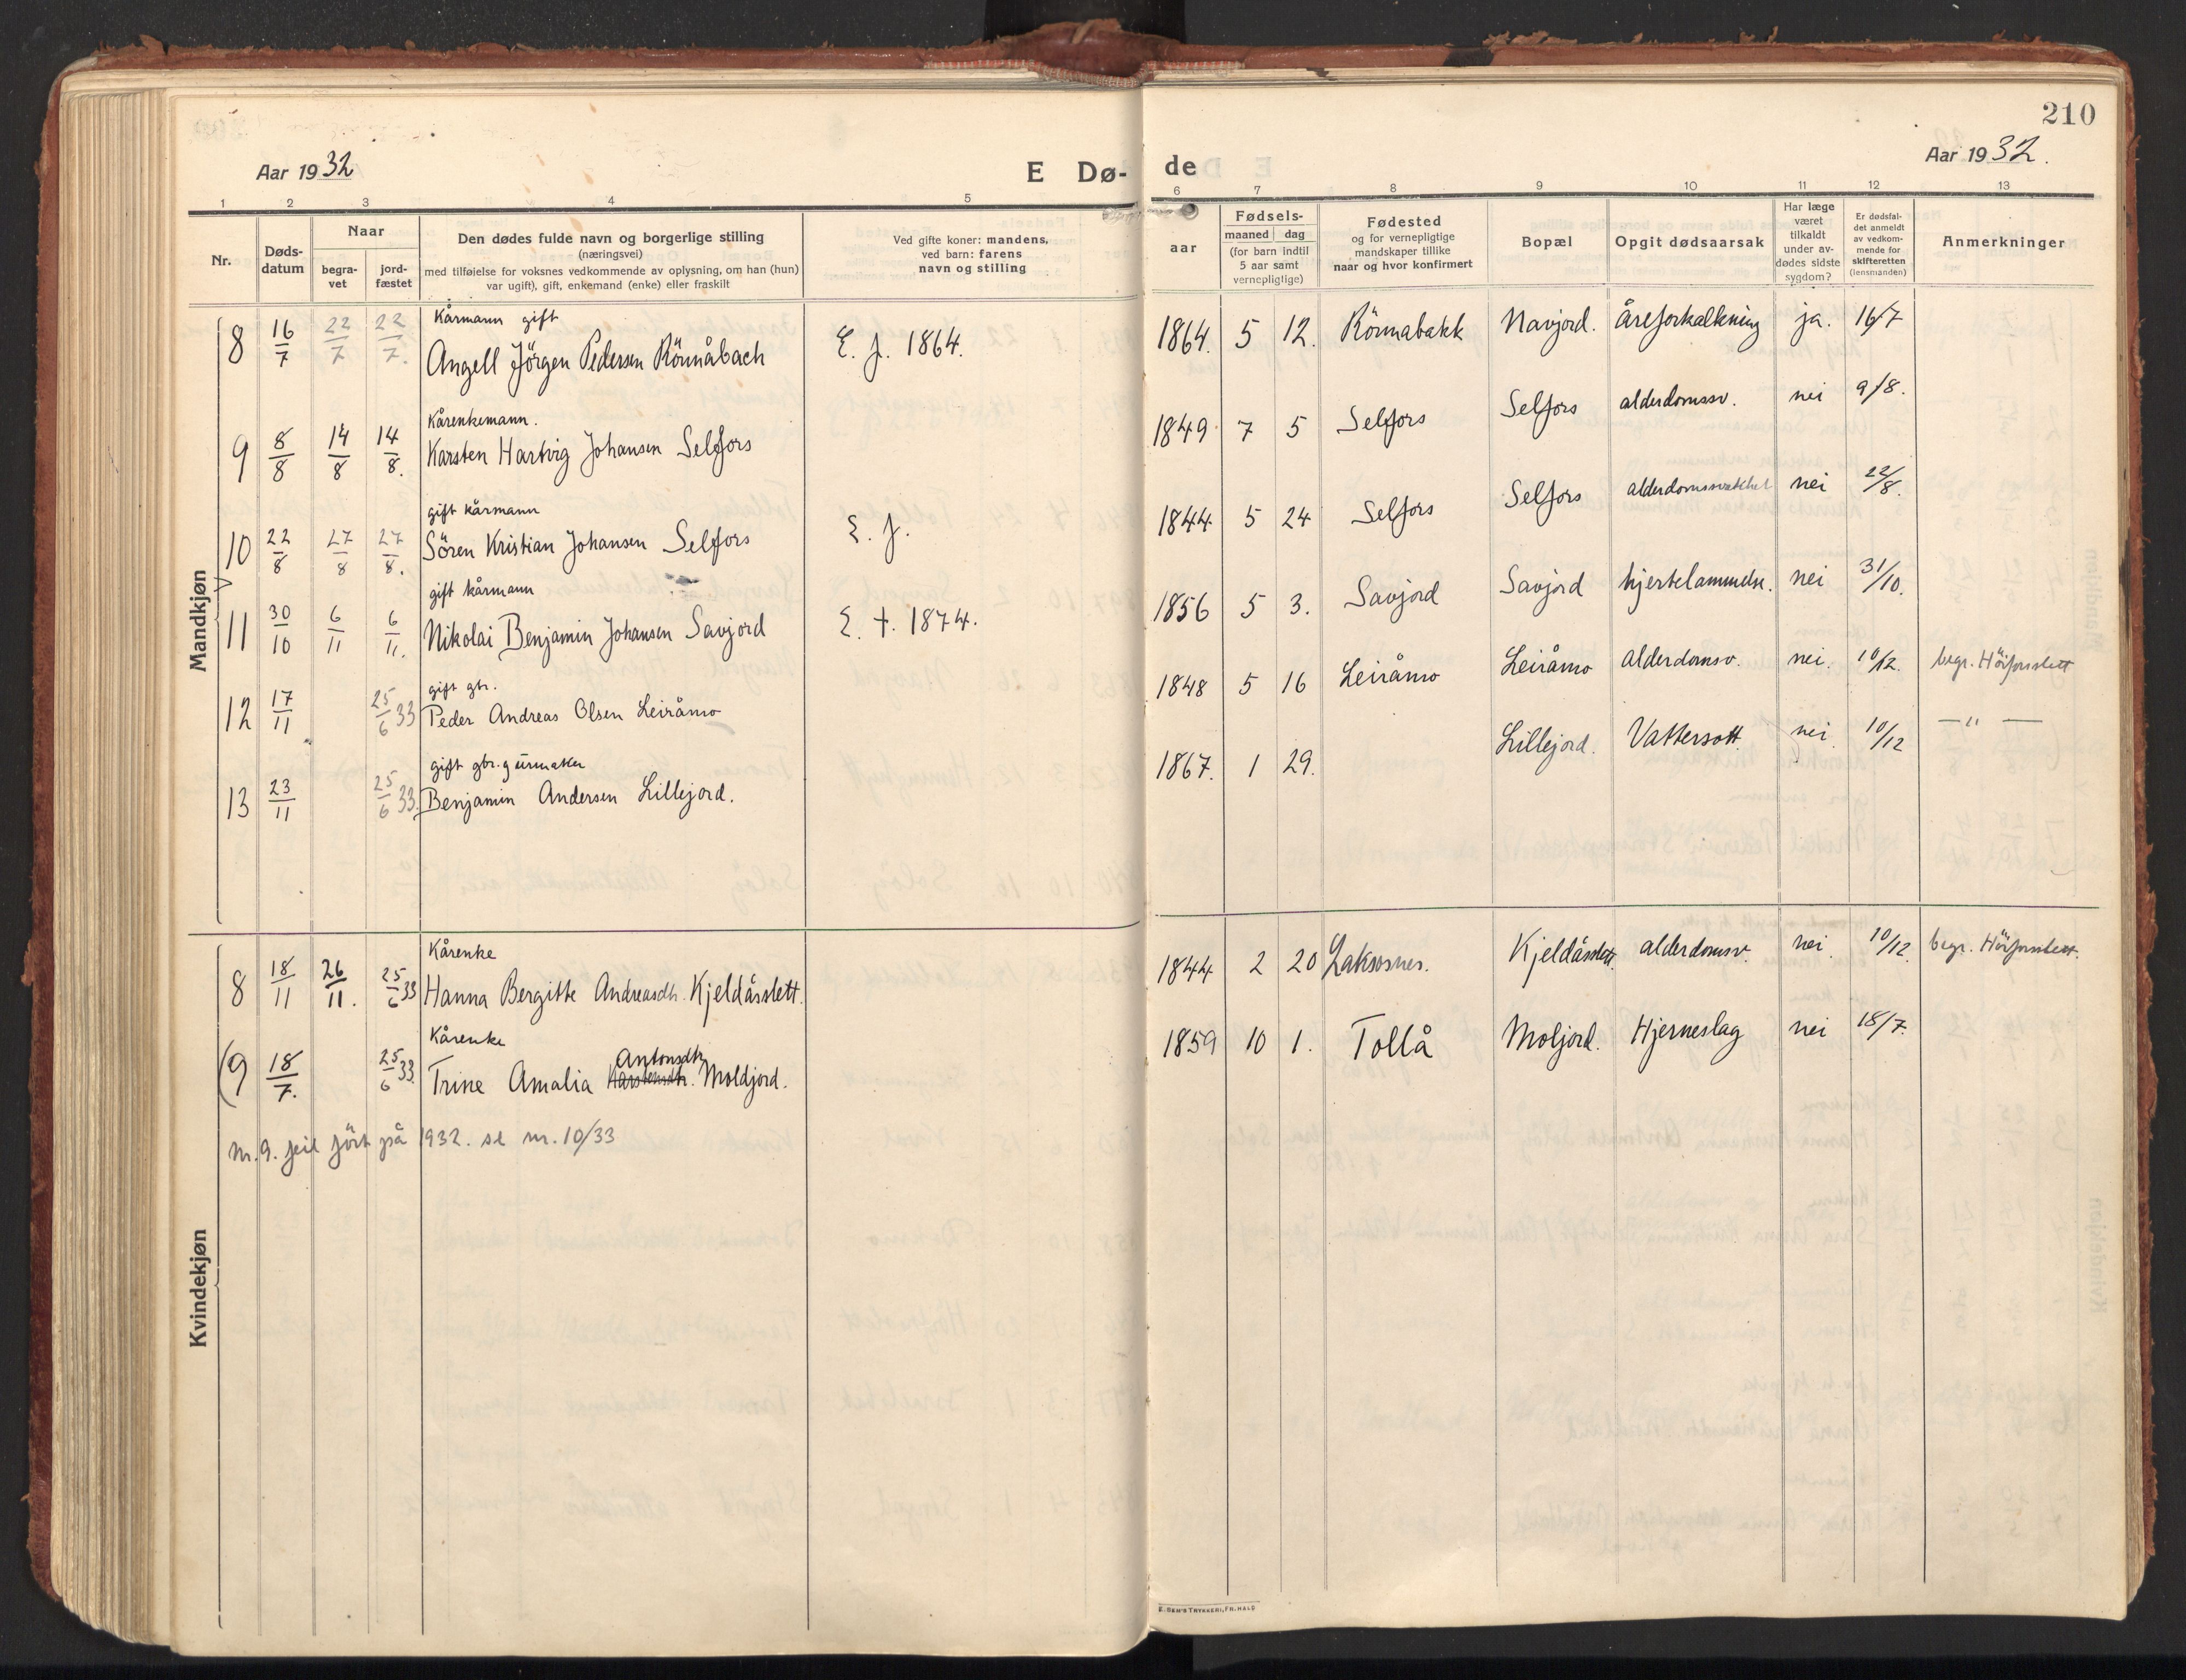 210
Aar 1932
E Dø-
de
Aar 1932.
1 2 3 4 5 6 7 8 9 10 11 12 13
Nr.
Døds-
datum
Naar
begra-
vet
jord-
fæstet
Den dødes fulde navn og borgerlige stilling
(næringsvei)
med tilføielse for voksnes vedkommende av oplysning, om han (hun)
var ugift), gift, enkemand (enke) eller fraskilt
Ved gifte koner: mandens,
ved barn: farens
navn og stilling
aar
Fødsels-
maaned dag
(for barn indtil
5 aar samt
vernepligtige)
Fødested
og for vernepligtige
mandskaper tillike
naar og hvor konfirmert
Bopæl
Opgit dødsaarsak
Har læge
været
tilkaldt
under av-
dødes sidste
sygdom?
Er dødsfal-
det anmeldt
av vedkom-
mende for
skifteretten
(lensmanden)
Anmerkninger
Mandkjøn
Kårmann gift
8 16/7 22/7 22/7. Angell Jörgen Pedersen Rönnåbach E. f. 1864. 1864. 5 12. Rönnabakk Navjord. åreforkalkning ja. 16/7
Kårenkemann.
9 8/8 14/8 14/8. Karsten Hartvig Johansen Selfors 1849. 7 5 Selfors Selfors alderdomssv. nei 9/8.
gift kårmann
10 22/8 27/8 27/8. Sören Kristian Johansen Selfors E. f. 1844 5 24 Selfors Selfors alderdomssvakhet nei 22/8.
gift kårmann
11 30/10 6/11 6/11. Nikolai Benjamin Johansen Savjord E. t. 1874. 1856 5 3. Savjord Savjord hjertelammelse. nei 31/10.
gift gbr.
12 17/11 25/6 33 Peder Andreas Olsen Leiråmo 1848 5 16 Leiråmo Leiråmo alderdomsv. nei. 10/12. begr. Höiforslett
gift gbr. g urmaker
13 23/11 25/6 33. Benjamin Andersen Lillejord. 1867. 1 29. Lillejord. Vattersott. nei 10/12 — " —
Kvindekjøn
Kårenke
8 18/11 26/11. 25/6 33 Hanna Bergitte Andreasdtr. Kjeldåsslett. 1844 2 20 Laksosnes. Kjeldåsslett. alderdomsv. nei. 10/12. begr. Höiforslett.
Kårenke
Antonsdtr
(9 18/7. 25/6 33. Trine Amalia Karstensdtr. Moldjord. 1859 10 1. Tollå Moljord. Hjerneslag nei 18/7.
nr. 9. feil fört på 1932. se nr. 10/33
E. SEM'S TRYKKERI, FR.HALD